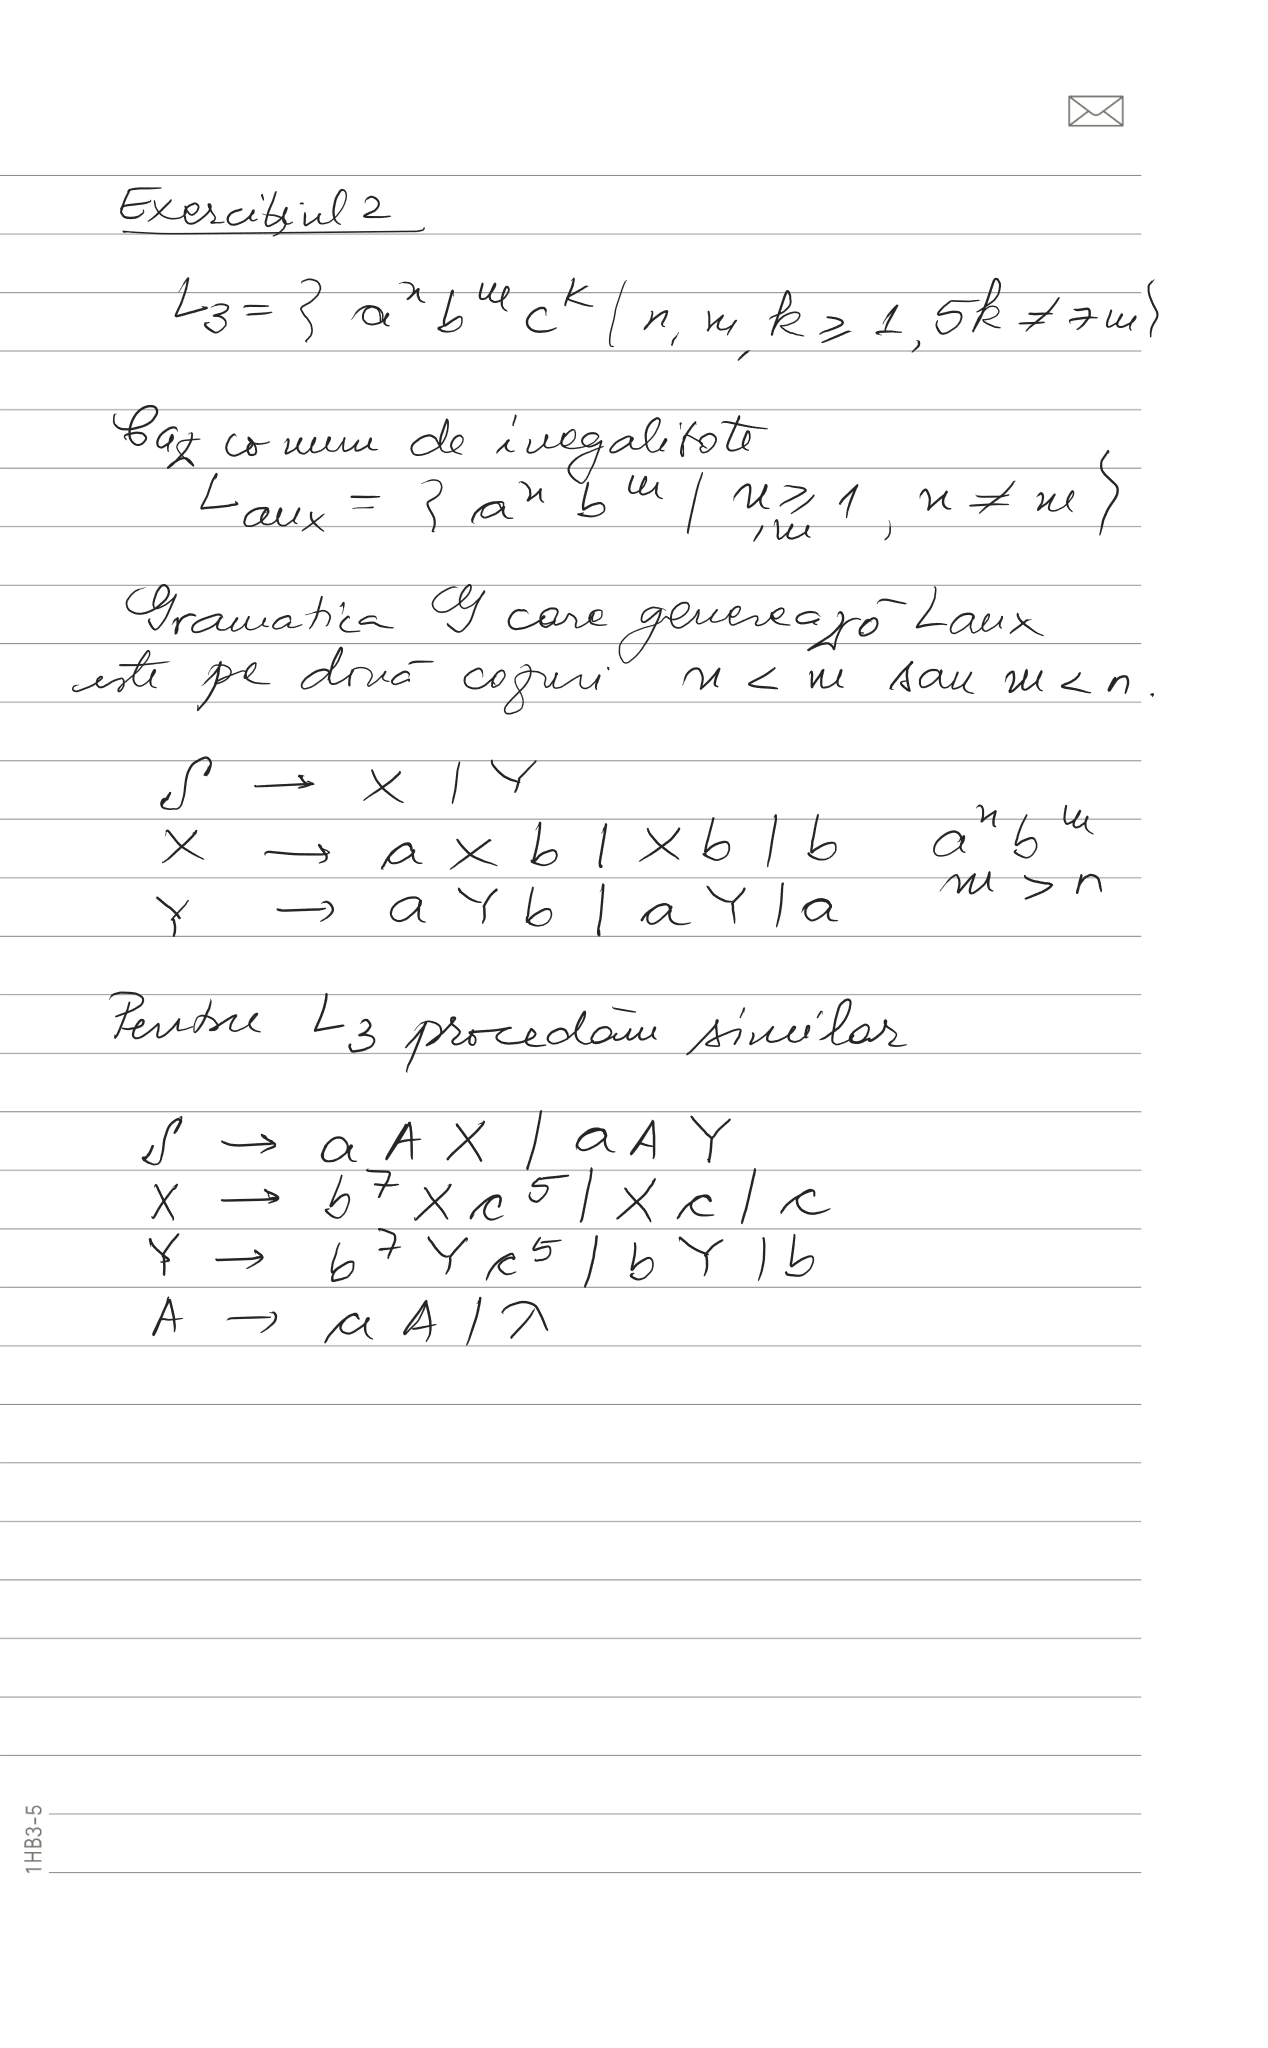 Exercițiul 2
L₃ = { aⁿ bᵐ cᵏ | n, m, k ≥ 1, 5k ≠ 7m }
Caz comun de inegalitate
L_aux = { aⁿ bᵐ | n, m ≥ 1, n ≠ m }
Gramatica G care generează L_aux
este pe două cazuri n < m sau m < n.
S → X | Y
X → a X b | X b | b aⁿ bᵐ
m > n
Y → a Y b | a Y | a
Pentru L₃ procedăm similar
S → a A X | a A Y
X → b⁷ X c⁵ | X c | c
Y → b⁷ Y c⁵ | b Y | b
A → a A | λ
1HB3-5